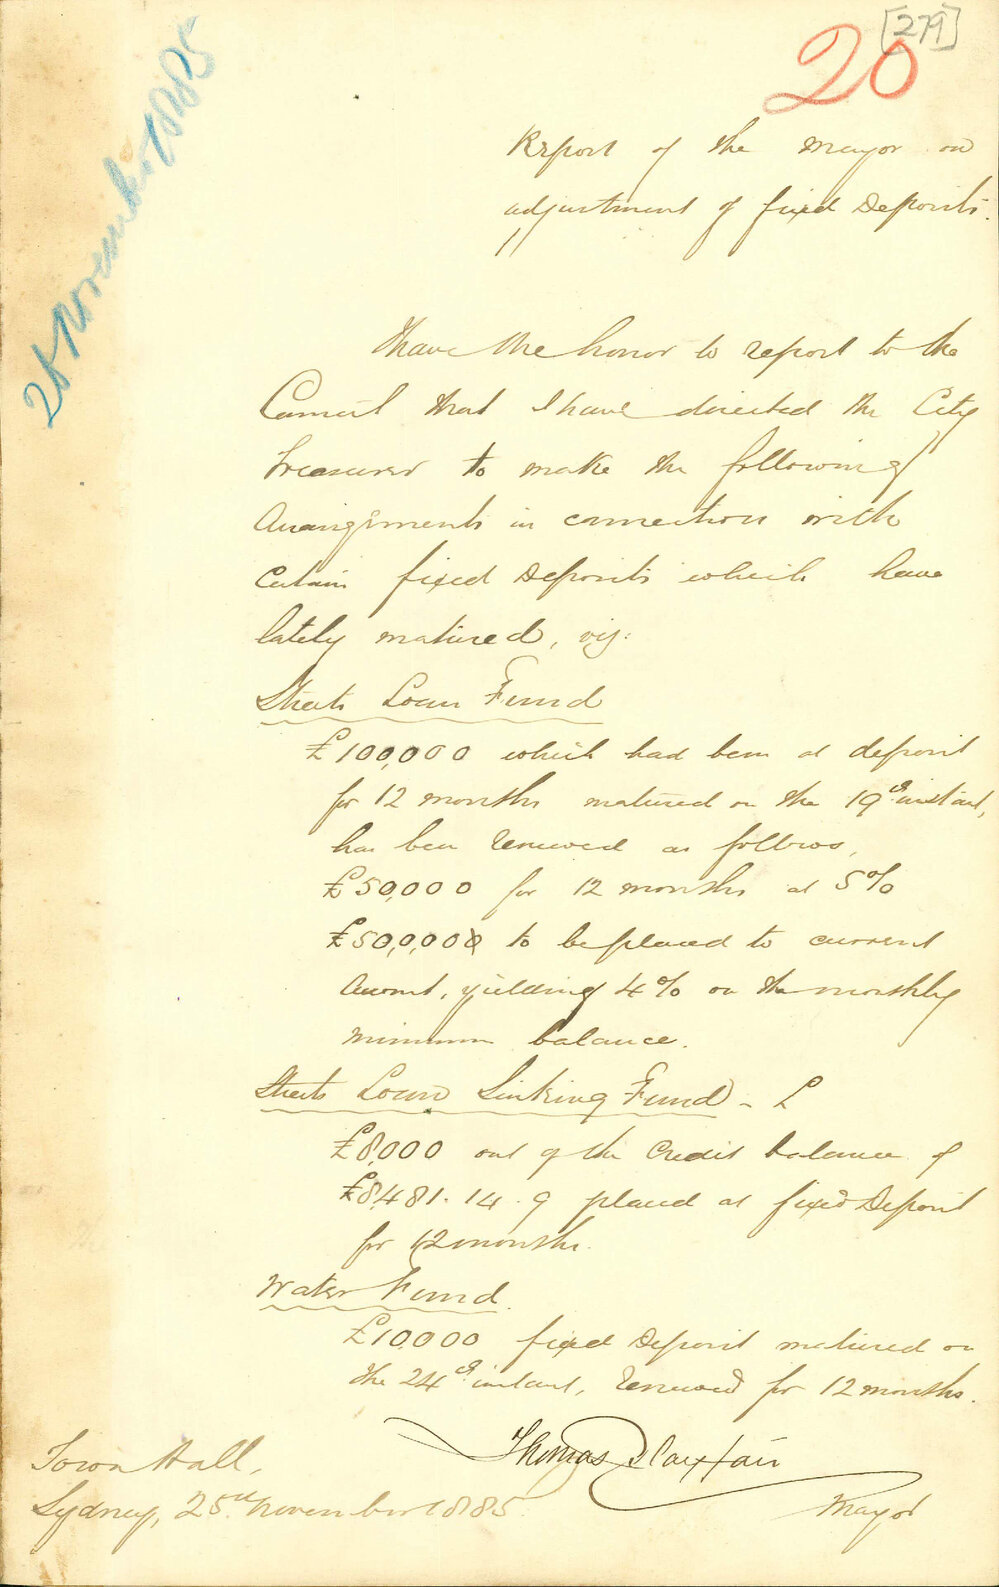 [279]
20
25 November 1885
Report of the Mayor on
adjustment of fixed Deposits.
I have the honor to report to the
Council that I have directed the City
Treasurer to make the following
Arrangements in connection with
Certain fixed Deposits which have
lately matured, viz:
Streets Loan Fund
£100,000 which had been at deposit
for 12 months matured on the 19th instant,
has been renewed as follows,
£50,000 for 12 months at 5%
£50,000 to be placed to current
Account, yielding 4% on the monthly
minimum balance.
Streets Loan Sinking Fund - £
£8,000 out of the Credit balance of
£8,481.14.9 placed at fixed Deposit
for 12 months.
Water Fund.
£10,000 fixed Deposit matured on
the 24th instant, renewed for 12 months.
Thomas Playfair
Mayor
Town Hall,
Sydney, 25th November 1885.